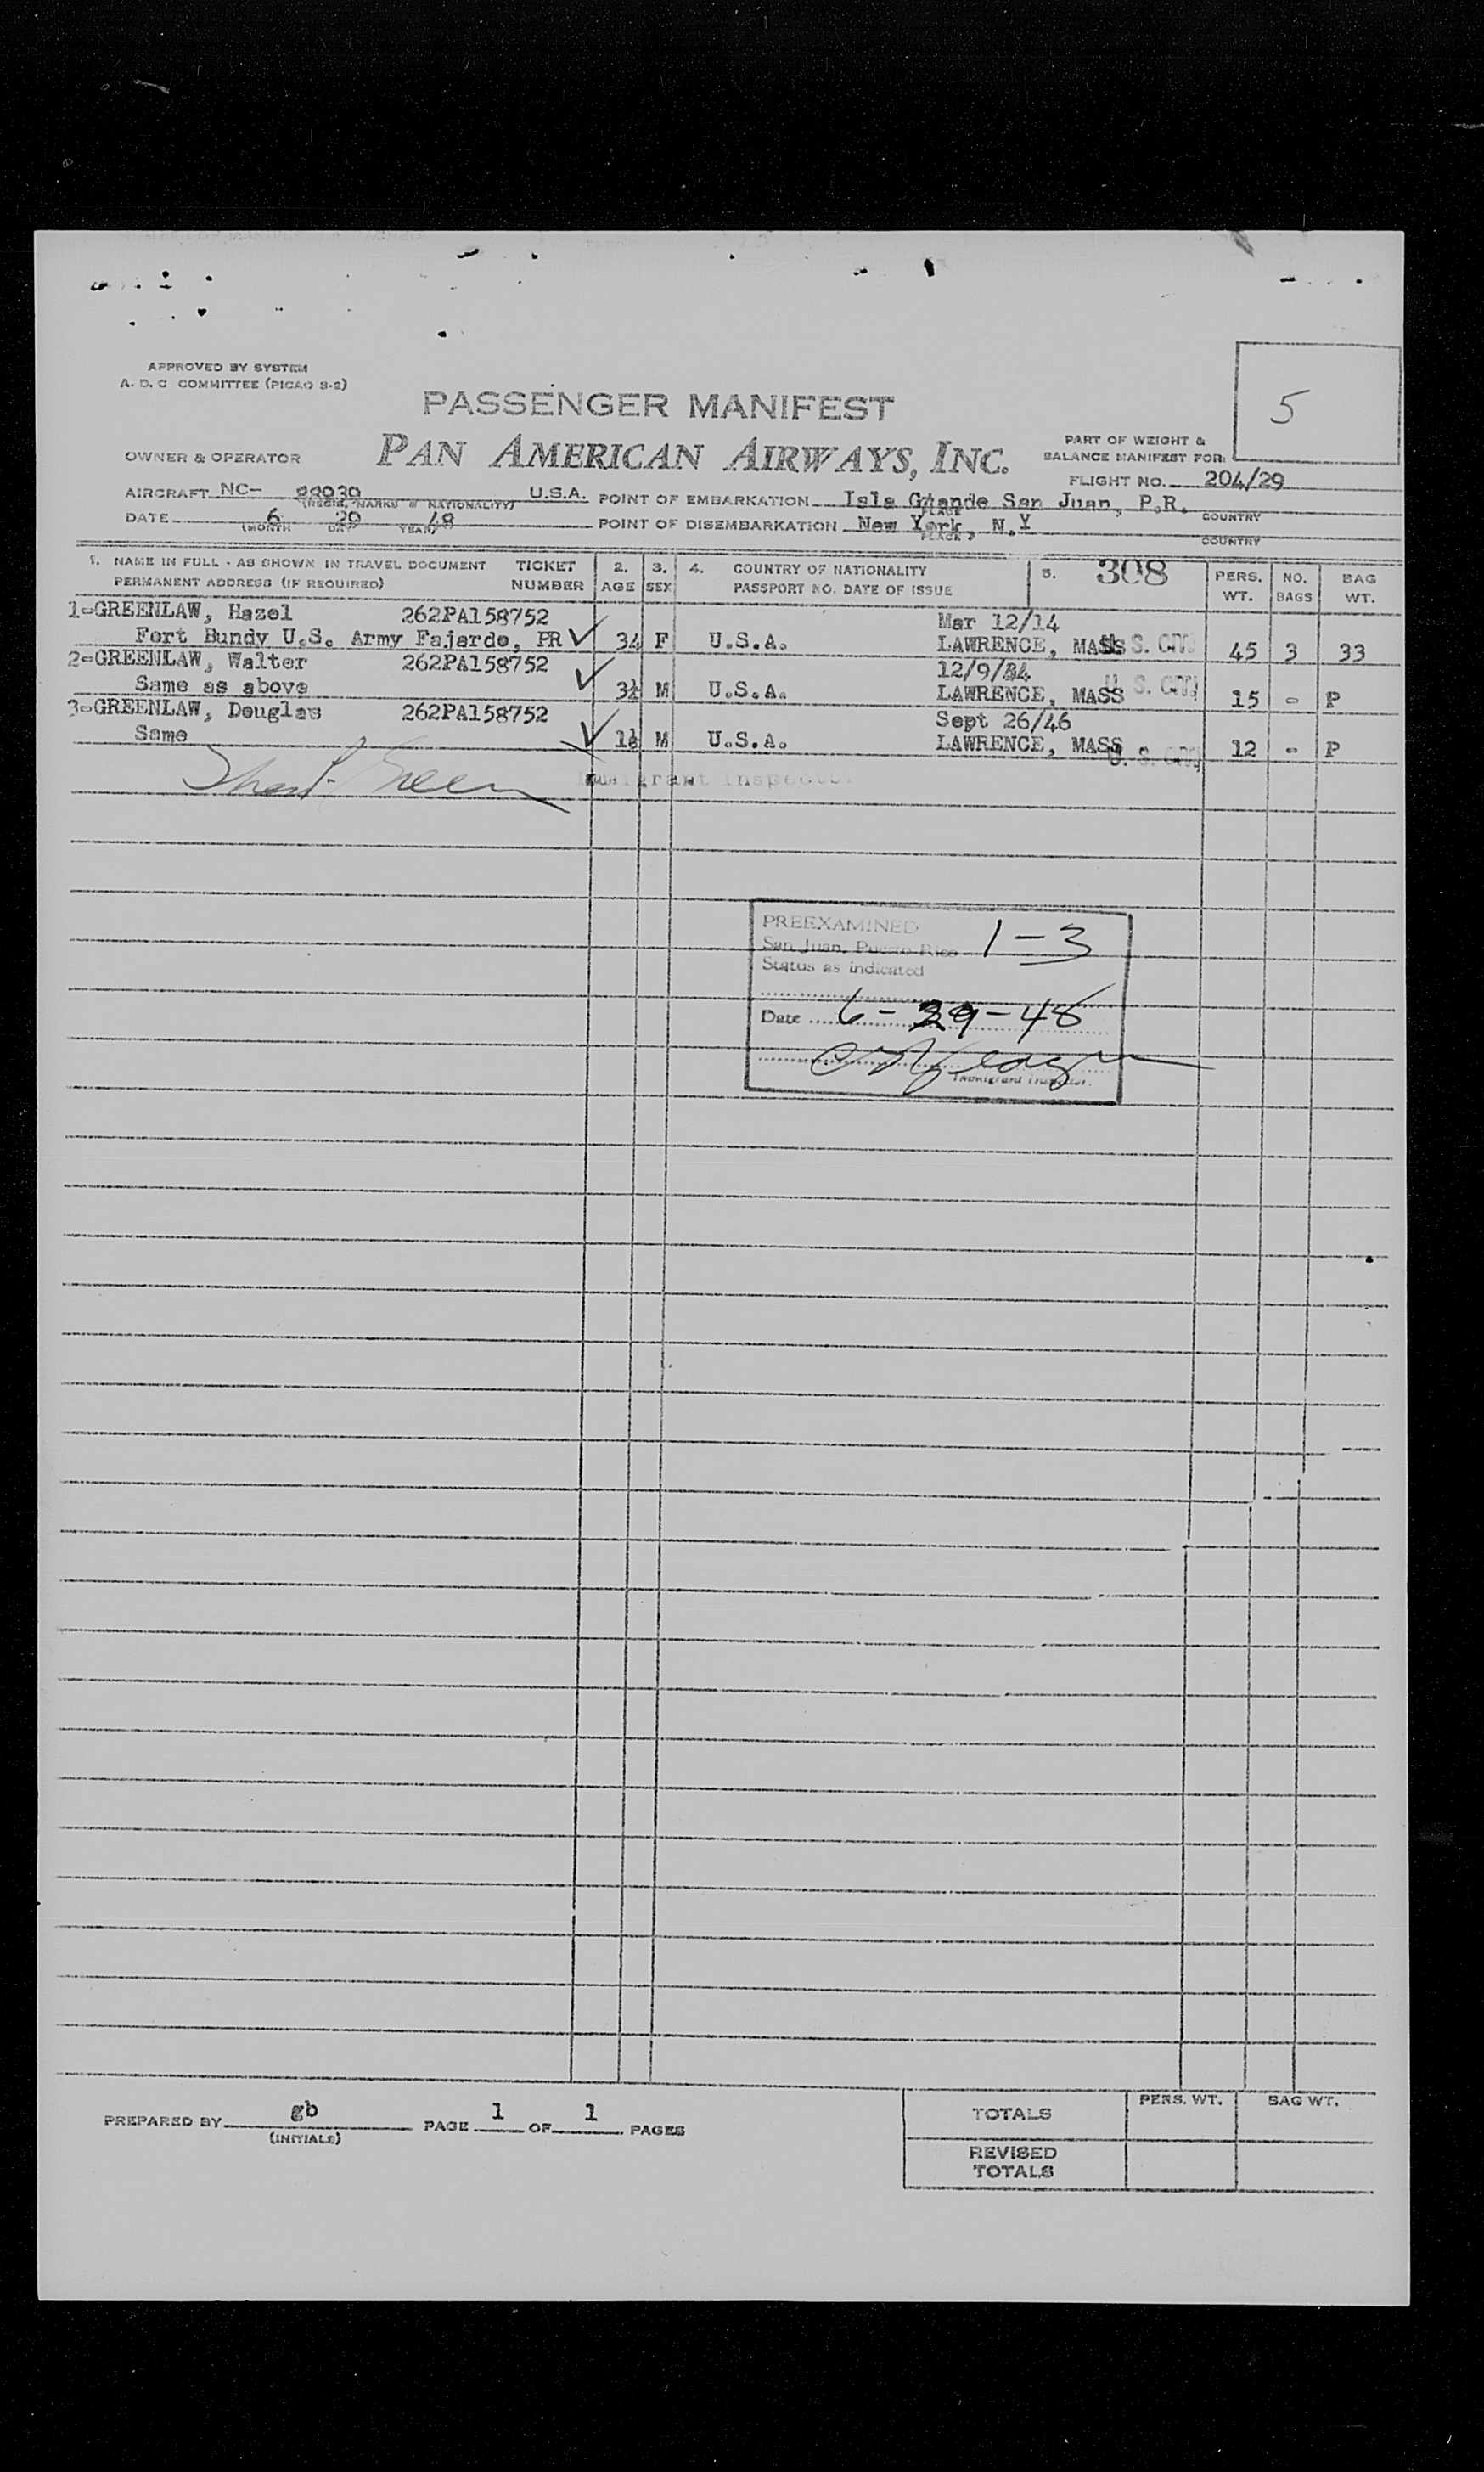 APPROVED BY SYSTEM
A. D. C COMMITTEE (PICAO S-2)
PASSENGER MANIFEST
5
OWNER & OPERATOR
PAN AMERICAN AIRWAYS, INC.
PART OF WEIGHT &
BALANCE MANIFEST FOR:
FLIGHT NO. 204/29
AIRCRAFT NC- U.S.A. POINT OF EMBARKATION Isla Grande San Juan, P.R.
MARKS & NATIONALITY) PLACE COUNTRY
DATE 6 29 48 POINT OF DISEMBARKATION New York, N.Y
(MONTH DAY YEAR) PLACE COUNTRY
1. NAME IN FULL - AS SHOWN IN TRAVEL DOCUMENT TICKET 2. 3. 4. COUNTRY OF NATIONALITY 5. 308 PERS. NO. BAG
PERMANENT ADDRESS (IF REQUIRED) NUMBER AGE SEX PASSPORT NO. DATE OF ISSUE WT. BAGS WT.
1-GREENLAW, Hazel 262PA158752 Mar 12/14
Fort Bundy U.S. Army Fajardo, PR 34 F U.S.A. LAWRENCE, MASS U. S. CIT. 45 3 33
2-GREENLAW, Walter 262PA158752 12/9/
Same as above 3½ M U.S.A. LAWRENCE, MASS U. S. CIT. 15 - P
3-GREENLAW, Douglas 262PA158752 Sept 26/46
Same 1½ M U.S.A. LAWRENCE, MASS U. S. CIT. 12 - P
Immigrant Inspector
PREEXAMINED
San Juan, Puerto Rico 1-3
Status as indicated
Date 6-29-48
Immigrant Inspector.
PREPARED BY gb PAGE 1 OF 1 PAGES
(INITIALS)
TOTALS PERS. WT. BAG WT.
REVISED
TOTALS